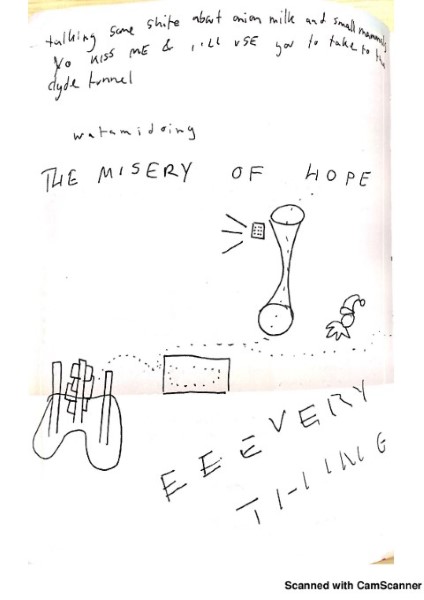 talking some shite about onion milk and small mammals
Yo KISS ME & I'LL USE you to take to the
clyde tunnel
watamidoing
THE MISERY OF HOPE
EEEVERY
THING
Scanned with CamScanner